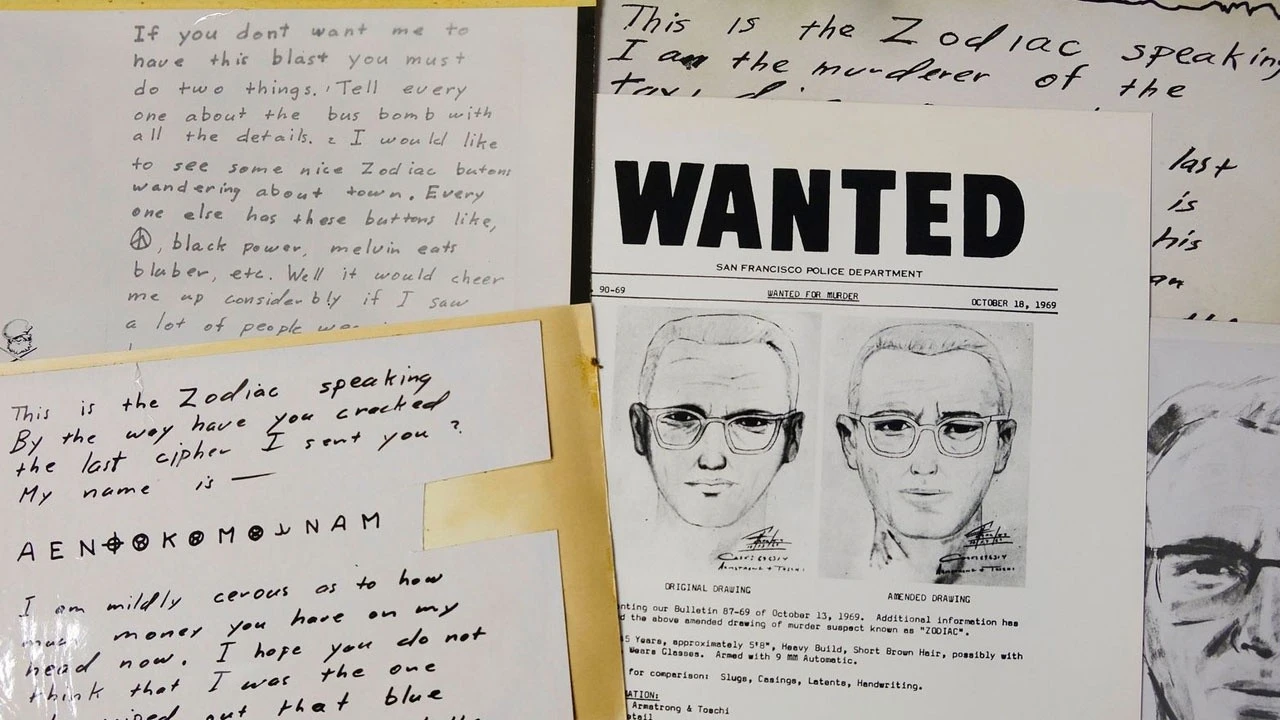 If you dont want me to
have this blast you must
do two things. 1 Tell every
one about the bus bomb with
all the details. 2 I would like
to see some nice Zodiac butons
wandering about town. Every
one else has these buttons like,
☮, black power, melvin eats
bluber, etc. Well it would cheer
me up considerbly if I saw
a lot of people
This is the Zodiac speaking
By the way have you cracked
the last cipher I sent you?
My name is —
A E N ⌖ ⊗ K ⊗ M ⊗ N A M
I am mildly cerous as to how
much money you have on my
head now. I hope you do not
think that I was the one
out that blue
This is the Zodiac speaking
I am the murderer of the
last
is
his
an
WANTED
SAN FRANCISCO POLICE DEPARTMENT
90-69 WANTED FOR MURDER OCTOBER 18, 1969
ORIGINAL DRAWING AMENDED DRAWING
nting our Bulletin 87-69 of October 13, 1969. Additional information has
d the above amended drawing of murder suspect known as "ZODIAC".
5 Years, approximately 5'8", Heavy Build, Short Brown Hair, possibly with
Wears Glasses. Armed with 9 MM Automatic.
for comparison: Slugs, Casings, Latents, Handwriting.
ATION:
Armstrong & Toschi
etail